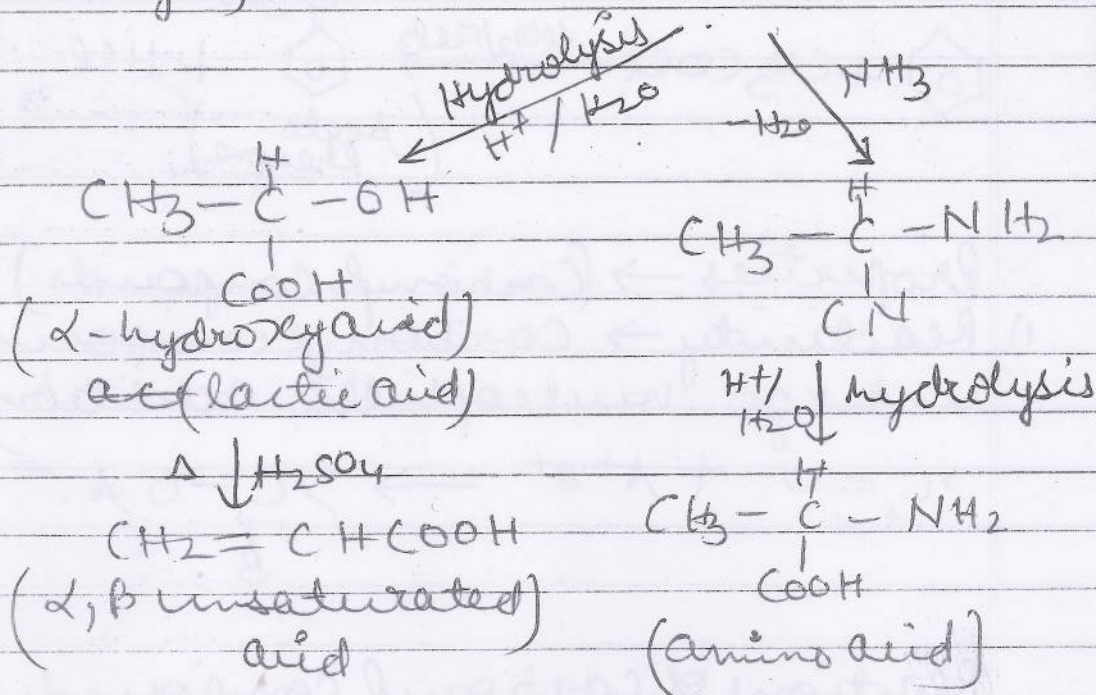 Hydrolysis
H+ / H2O
NH3
-H2O
H
CH3 - C - OH
COOH
(α-hydroxy acid)
(lactic acid)
Δ ↓ H2SO4
CH2 = CHCOOH
(α, β unsaturated)
acid
H
CH3 - C - NH2
CN
H+/ ↓ hydrolysis
H2O
H
CH3 - C - NH2
COOH
(amino acid)